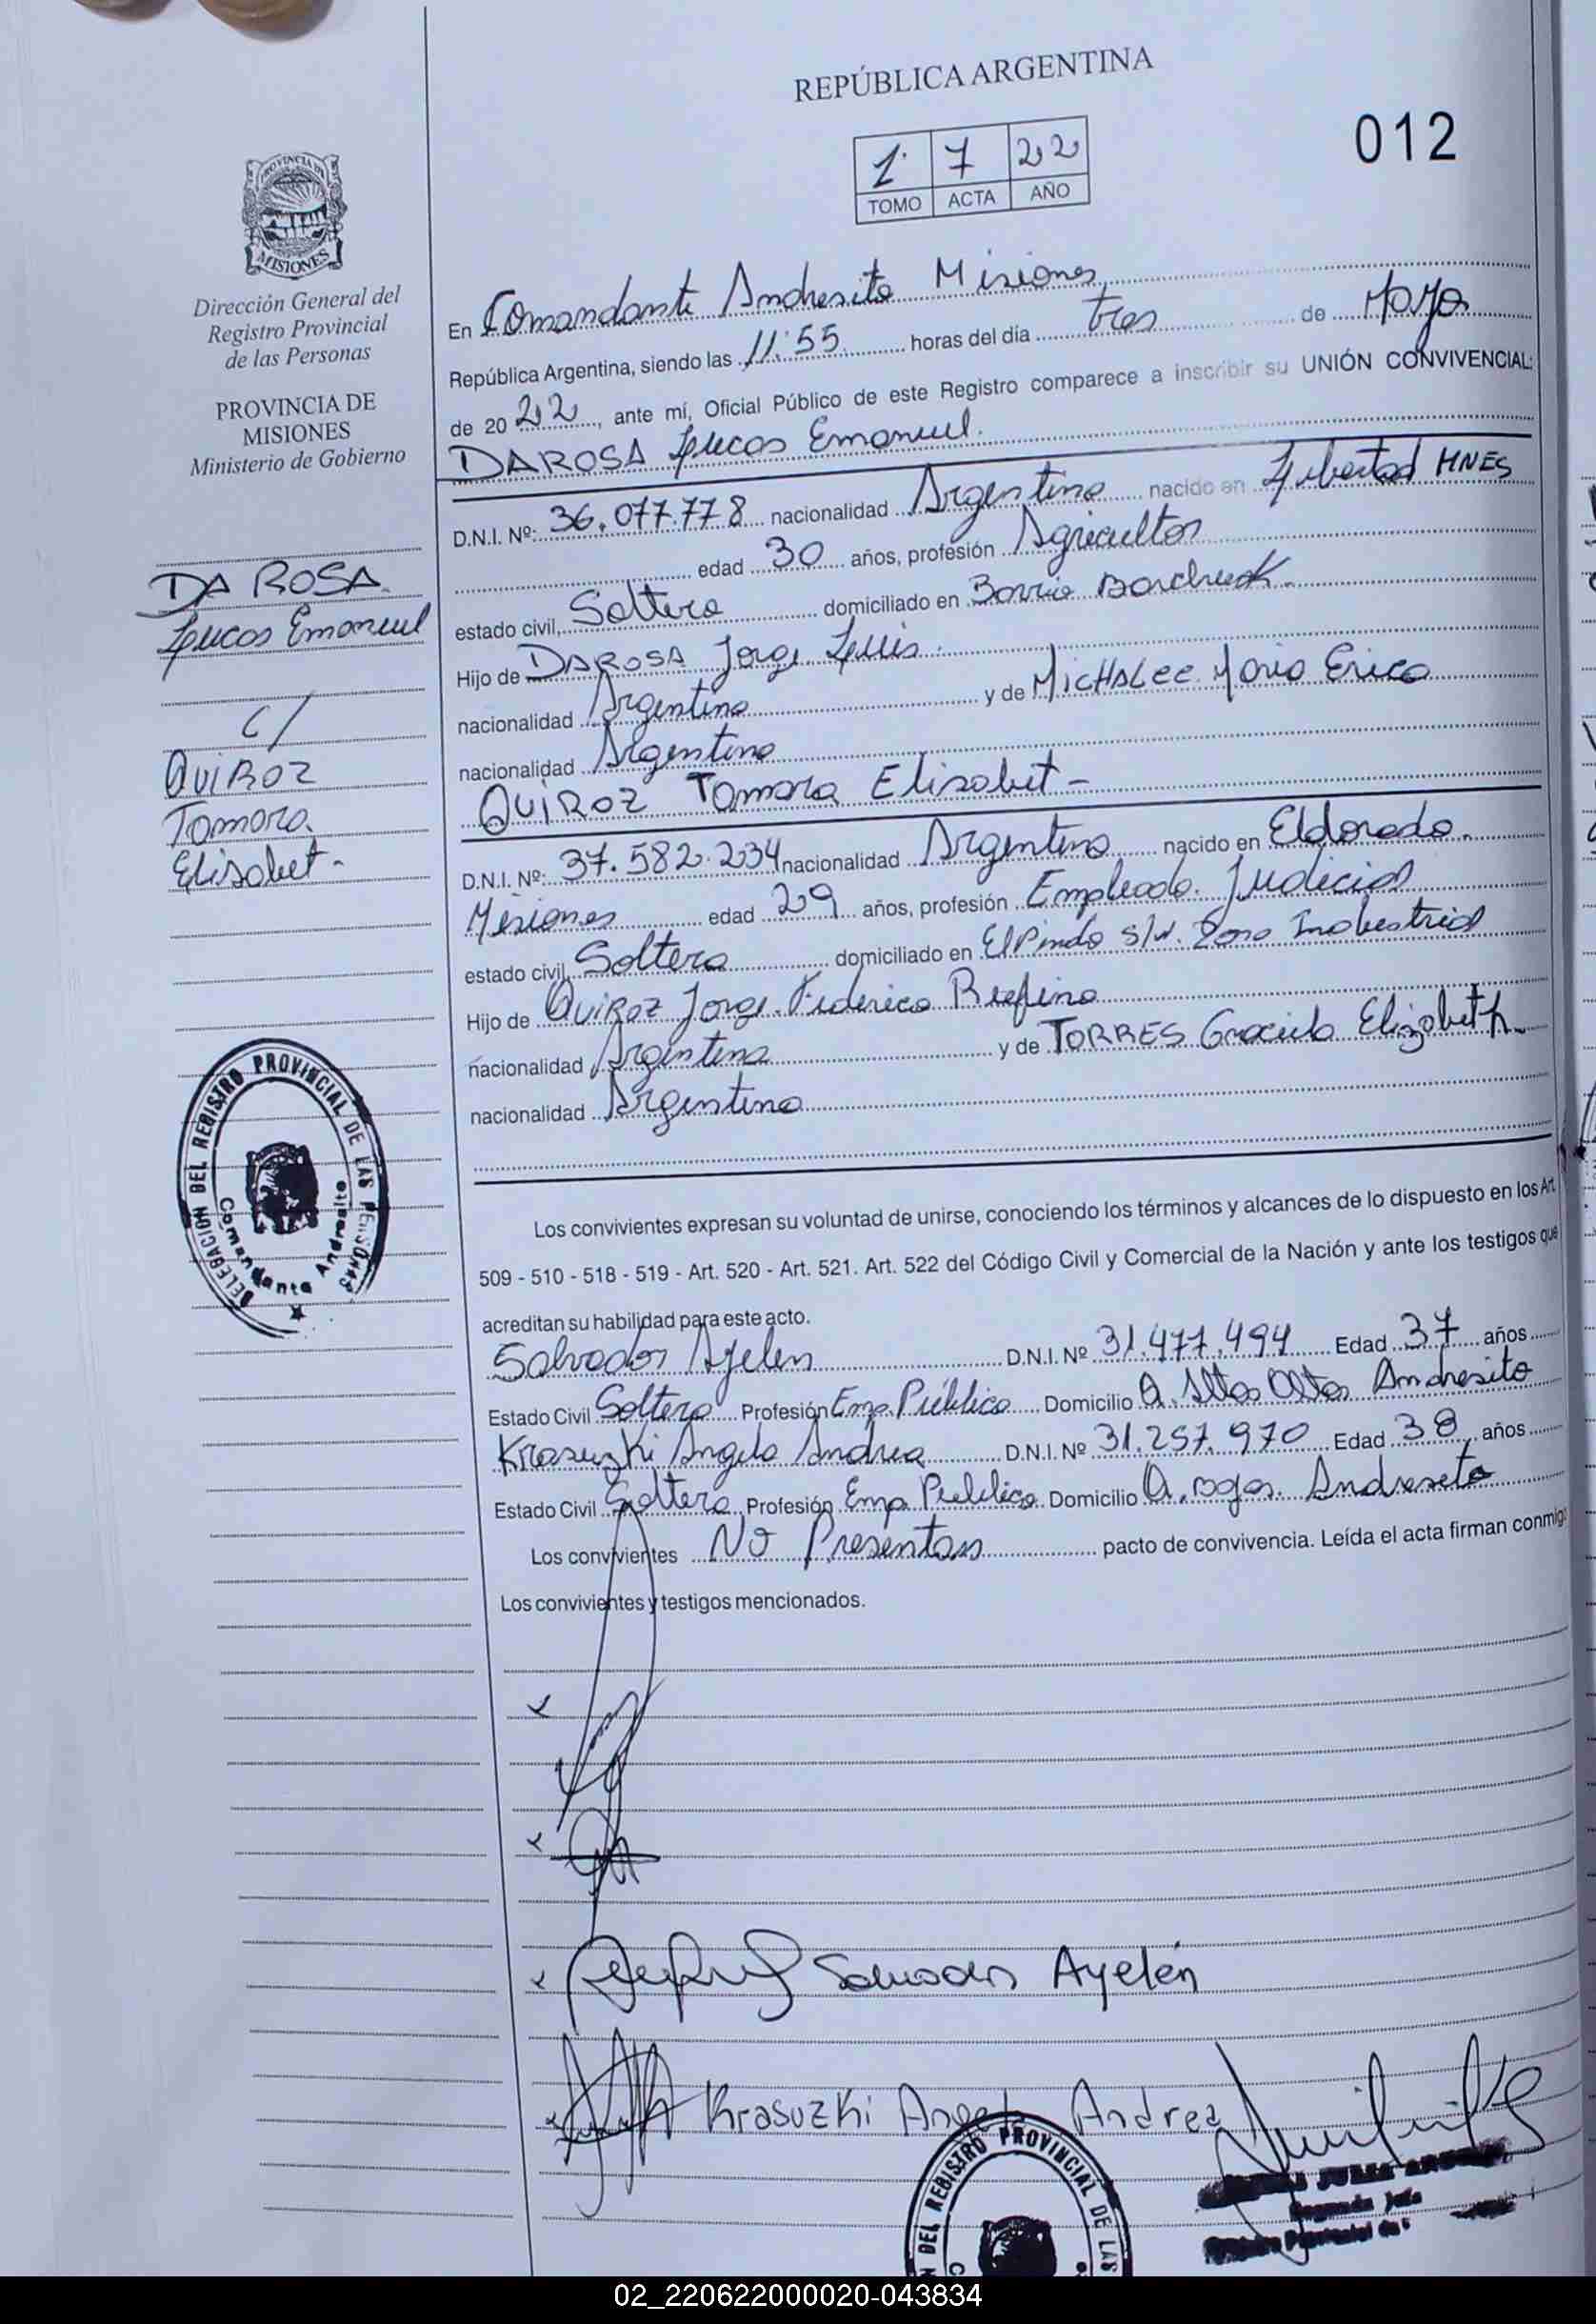 REPÚBLICA ARGENTINA
012
1· 7 22
TOMO ACTA AÑO
PROVINCIA DE
MISIONES
Dirección General del
Registro Provincial
de las Personas
PROVINCIA DE
MISIONES
Ministerio de Gobierno
DA ROSA
Lucas Emanuel
c/
QUIROZ
Tamara
Elisabet -
DELEGACION DEL REGISTRO PROVINCIAL DE LAS PERSONAS
Comandante Andresito
En Comandante Andresito Misiones
República Argentina, siendo las 11:55 horas del día tres de Mayo
de 2022, ante mí, Oficial Público de este Registro comparece a inscribir su UNIÓN CONVIVENCIAL:
DA ROSA Lucas Emanuel.
D.N.I. Nº: 36.077.778 nacionalidad Argentina nacido en Libertad MNES
edad 30 años, profesión Agricultor
estado civil, Soltero domiciliado en Barrio
Hijo de DA ROSA Jorge Luis.
nacionalidad Argentina y de Maria Erica
nacionalidad Argentina
QUIROZ Tamara Elisabet -
D.N.I. Nº: 37.582.234 nacionalidad Argentina nacido en Eldorado.
Misiones edad 29 años, profesión Empleada Judicial
estado civil, Soltera domiciliado en El Pindo s/n. Zona Industrial
Hijo de QUIROZ Jorge Federico Rufino
nacionalidad Argentina y de TORRES Graciela Elizabeth
nacionalidad Argentina
Los convivientes expresan su voluntad de unirse, conociendo los términos y alcances de lo dispuesto en los Art.
509 - 510 - 518 - 519 - Art. 520 - Art. 521. Art. 522 del Código Civil y Comercial de la Nación y ante los testigos que
acreditan su habilidad para este acto.
Salvador Ayelen D.N.I. Nº 31.477.494 Edad 37 años
Estado Civil Soltera Profesión Emp. Público Domicilio Andresito
Krasuzki Angela Andrea D.N.I. Nº 31.257.970 Edad 38 años
Estado Civil Soltera Profesión Emp Publico Domicilio Andresito
Los convivientes No Presentan pacto de convivencia. Leída el acta firman conmigo
Los convivientes y testigos mencionados.
Salvador Ayelén
Krasuzki Angela Andrea
DEL REGISTRO PROVINCIAL DE LAS
02_220622000020-043834